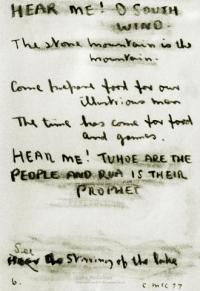 HEAR ME! O SOUTH
WIND.
The stone mountain is the
mountain.
Come prepare food for our
illustrious men
The time has come for food
and games.
HEAR ME! TUHOE ARE THE
PEOPLE AND RUA IS THEIR
PROPHET
See
Hear the Stirring of the lake
6.
C. McC 77